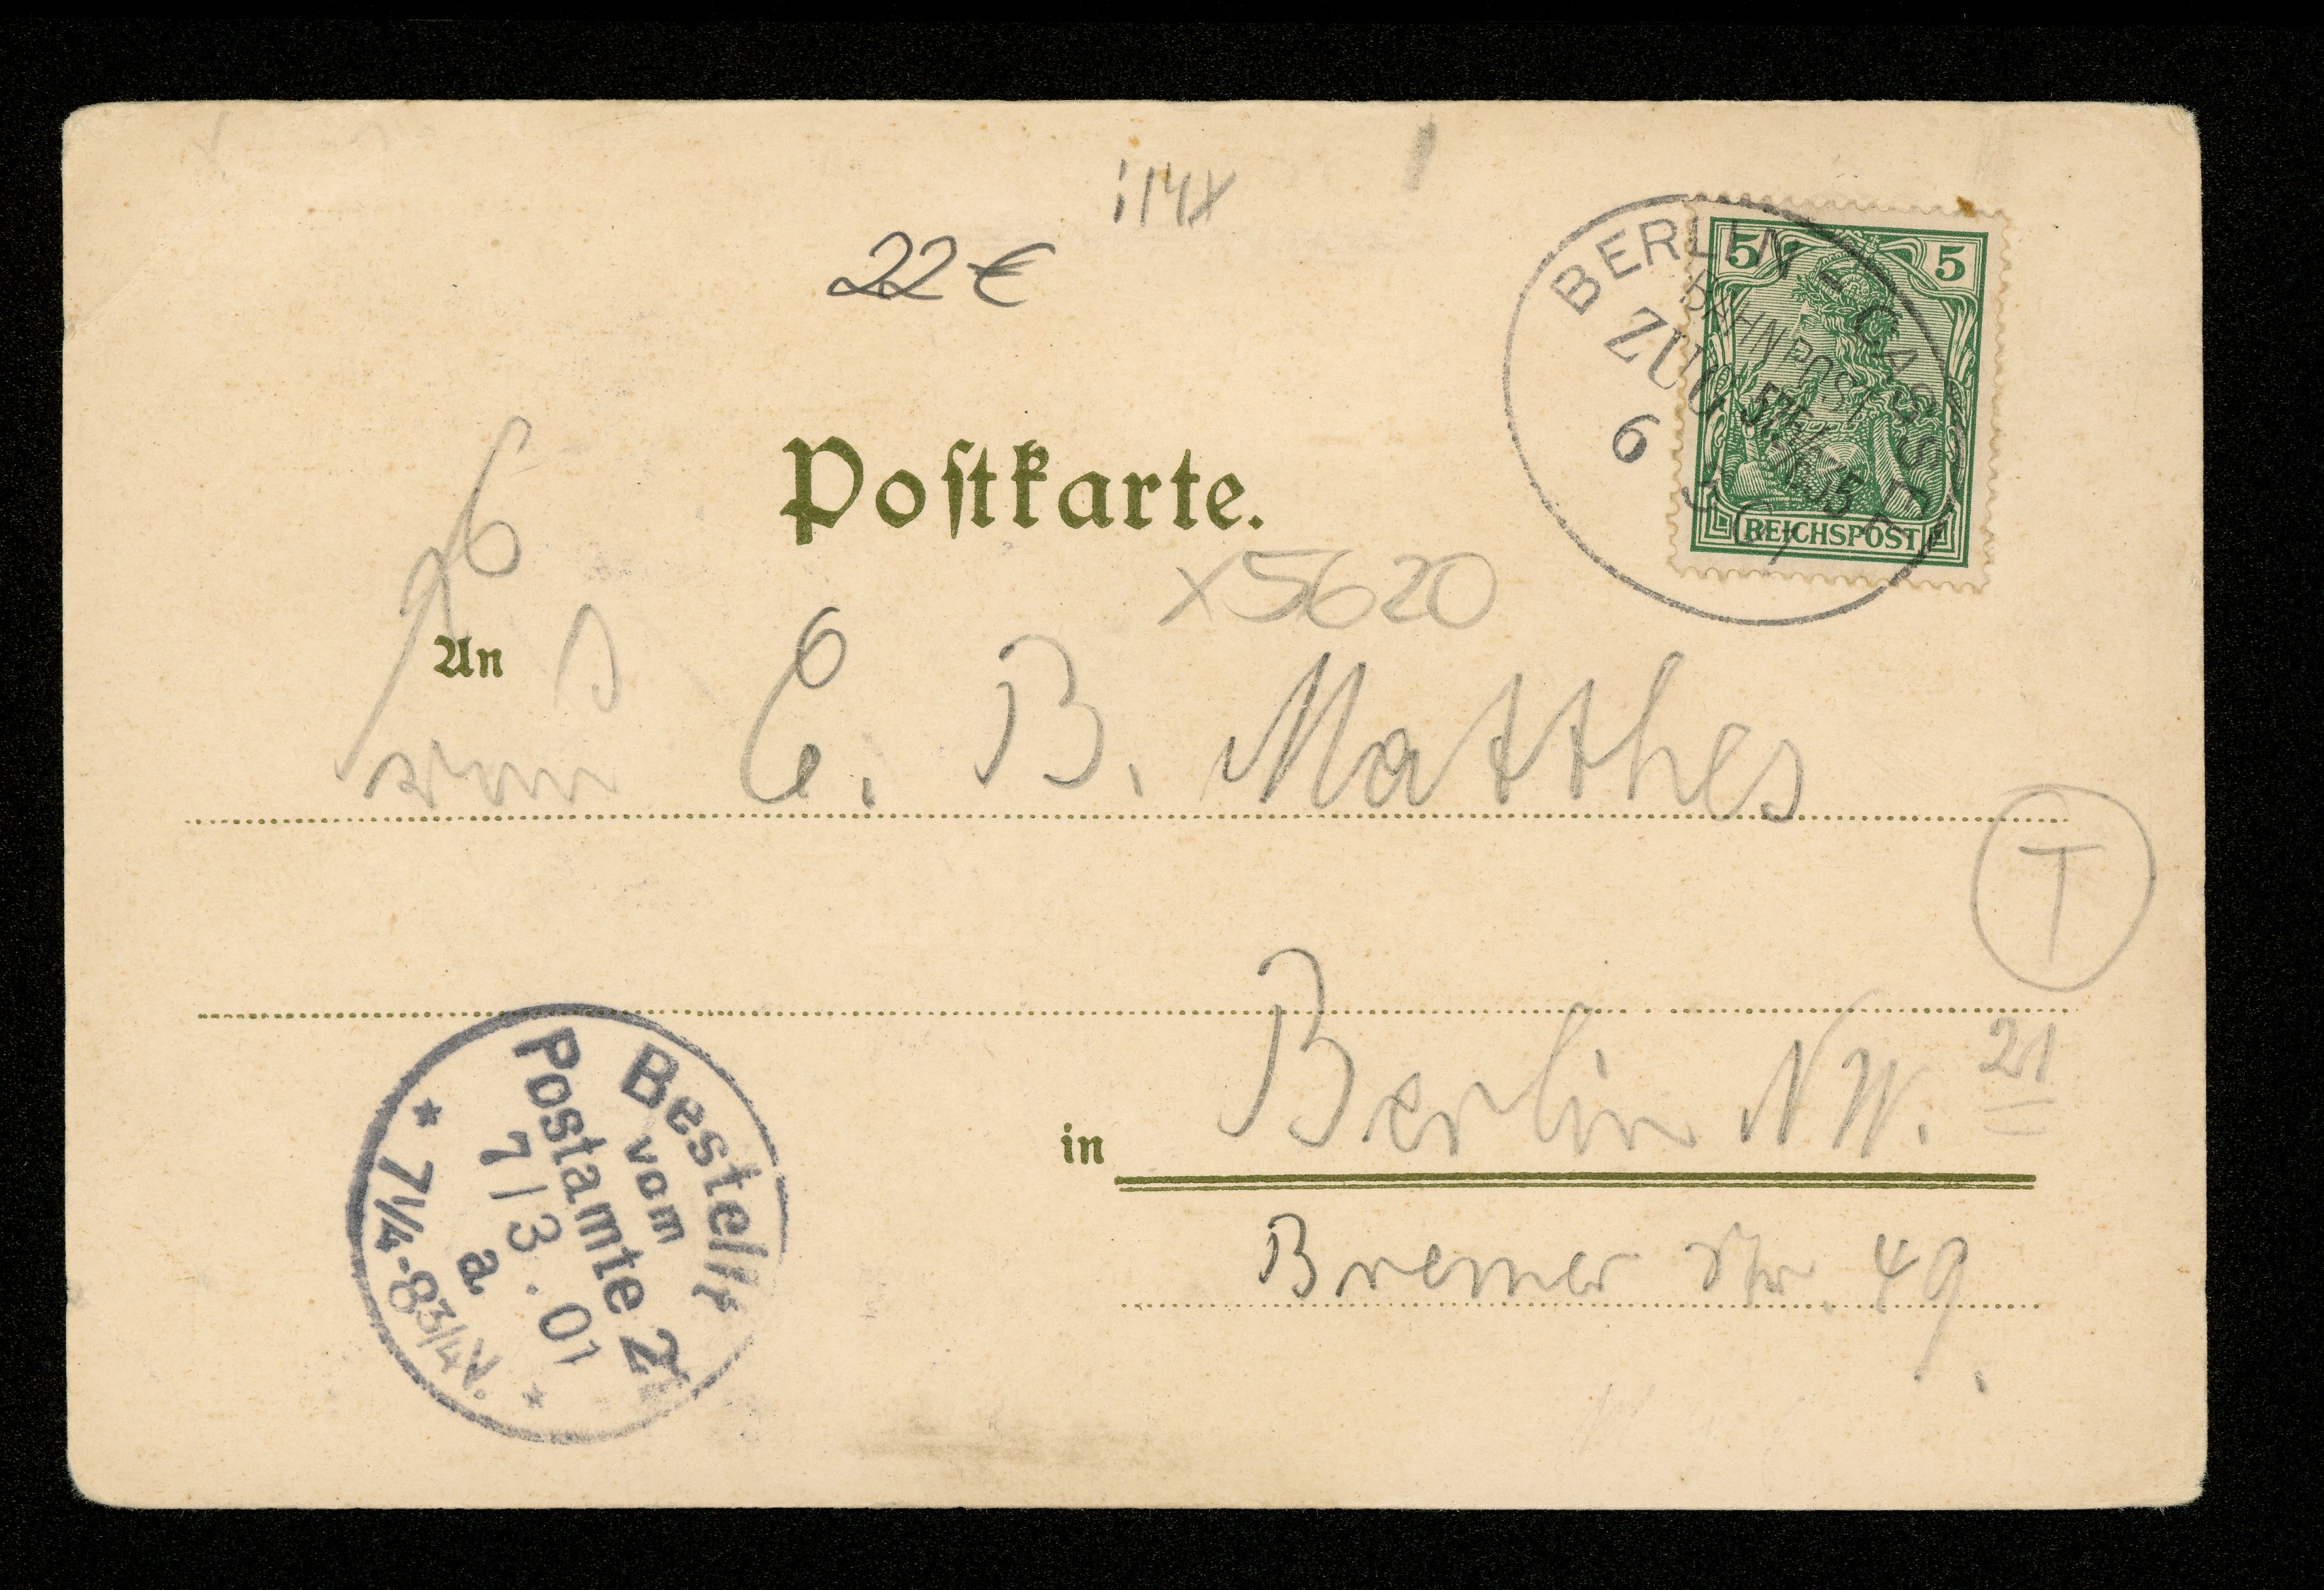 22 €
5 5
REICHSPOST
BERLIN - CASSEL
BAHNPOST
ZUG
6 3 01
Postkarte.
x5620
An
C. B. Matthes
T
in Berlin NW. 21
Bremer Str. 49.
Bestellt
vom
Postamte 21
7/3.01
a
* 7 1/4-8 3/4 V. *